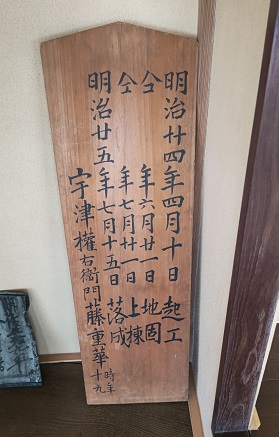 明治廿四年四月十日 起工
仝 年六月廿一日 地固
仝 年七月廿一日 上棟
明治廿五年七月十五日 落成
宇津權右衛門藤重華 時年十九